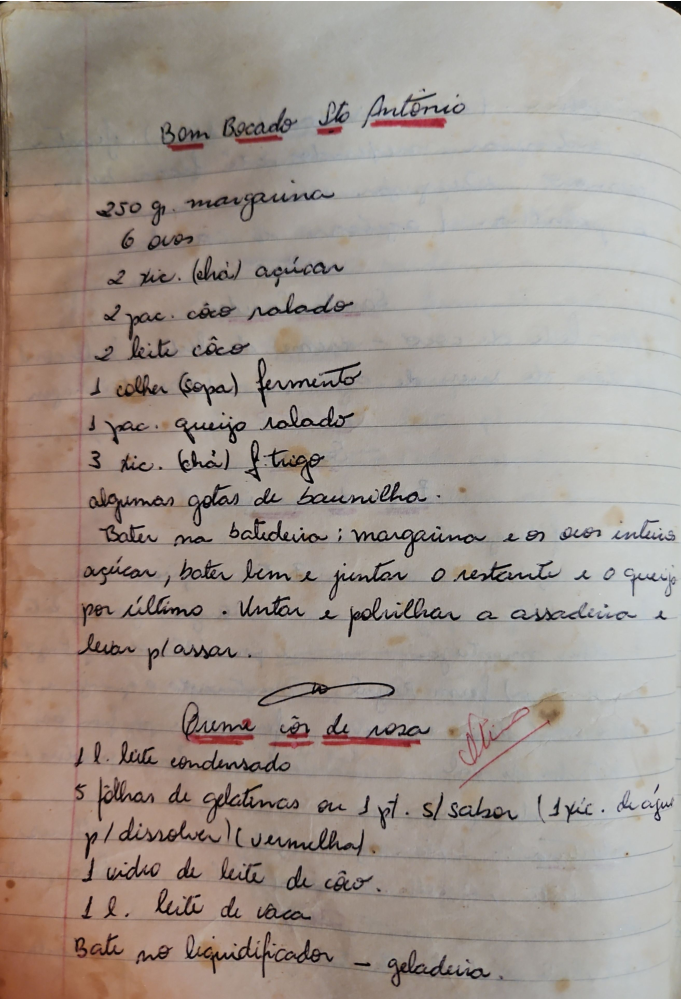 Bom Bocado Sto Antônio
250 gr. margarina
6 ovos
2 xic. (chá) açúcar
2 pac. côco ralado
2 leite côco
1 colher (sopa) fermento
1 pac. queijo ralado
3 xic. (chá) f. trigo
algumas gotas de baunilha.
Bater na batedeira: margarina e os ovos inteiros
açúcar, bater bem e juntar o restante e o queijo
por último. Untar e polvilhar a assadeira e
levar p/ assar.
Creme côr de rosa
Ótimo
1 l. leite condensado
5 fôlhas de gelatinas ou 1 pt. s/ sabor (1 xic. de água
p/ dissolver) (vermelha).
1 vidro de leite de côco.
1 l. leite de vaca
Bate no liquidificador – geladeira.